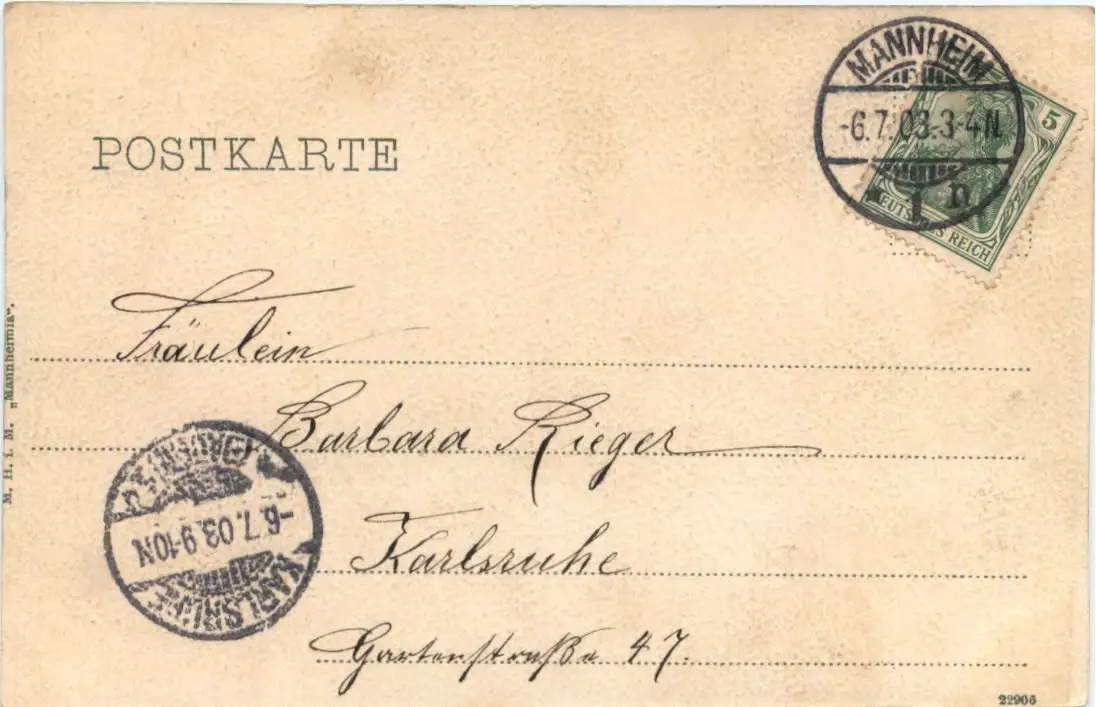 MANNHEIM
-6.7.03.3-4N.
1 n
5
DEUTSCHES REICH
POSTKARTE
Fräulein
Barbara Rieger
Karlsruhe
Gartenstraße 47.
-6.7.03.9-10N.
KARLSRUHE
M. H. i. M. „Mannheimia“.
22906